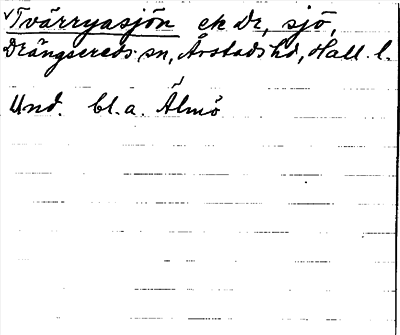 √Tvärryasjön ek Dr, sjö,
Drängsereds sn, Årstads hd, Hall. l.
Und. bl.a. Älmö